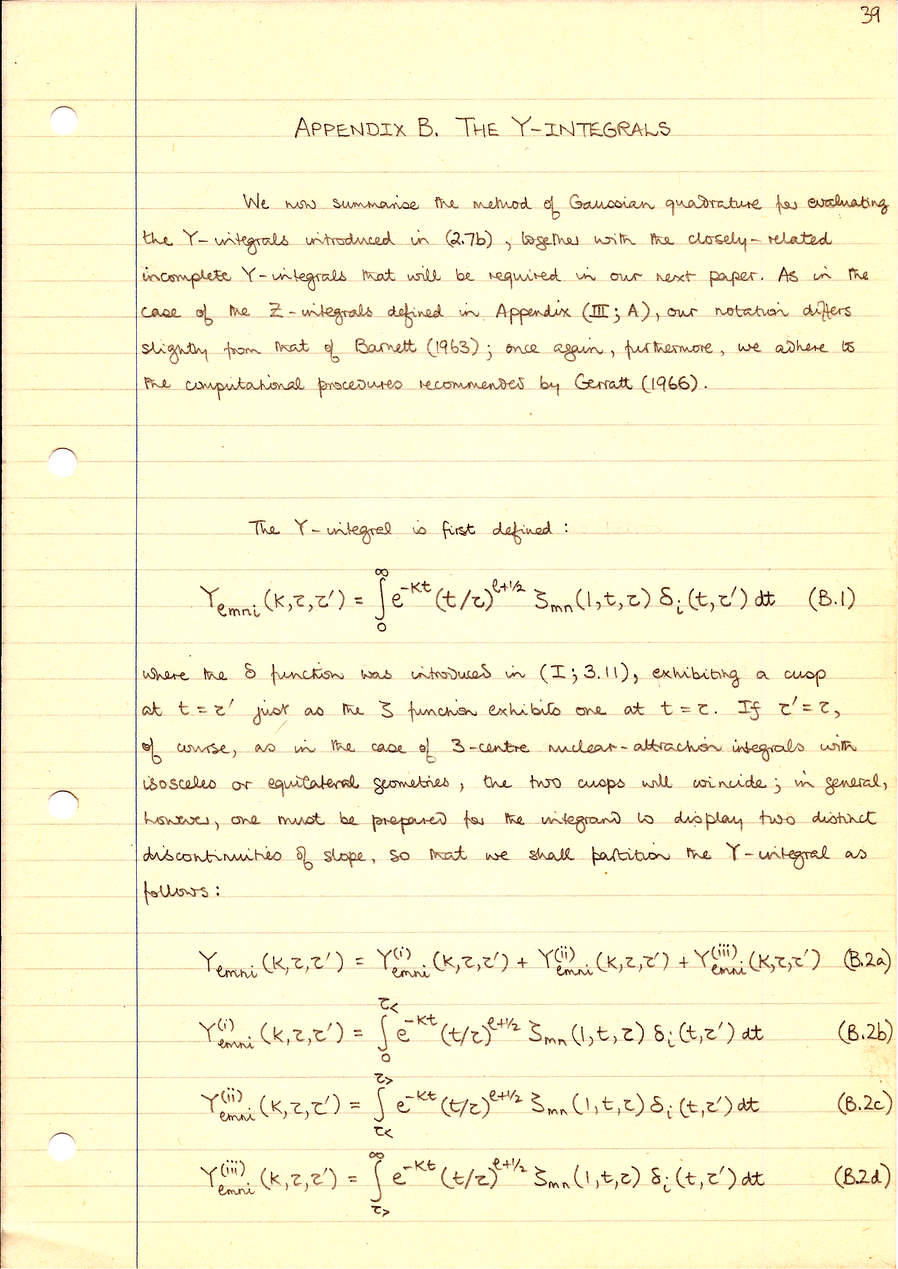 39
APPENDIX B. THE Y-INTEGRALS
We now summarise the method of Gaussian quadrature for evaluating
the Y-integrals introduced in (2.7b), together with the closely-related
incomplete Y-integrals that will be required in our next paper. As in the
case of the Z-integrals defined in Appendix (III; A), our notation differs
slightly from that of Barnett (1963); once again, furthermore, we adhere to
the computational procedures recommended by Gerratt (1966).
The Y-integral is first defined:
Yℓmni(κ,τ,τ′) = ∫₀^∞ e^(-κt) (t/τ)^(ℓ+1/2) ζmn(1,t,τ) δi(t,τ′) dt (B.1)
where the δ function was introduced in (I; 3.11), exhibiting a cusp
at t = τ′ just as the ζ function exhibits one at t = τ. If τ′ = τ,
of course, as in the case of 3-centre nuclear-attraction integrals with
isosceles or equilateral geometries, the two cusps will coincide; in general,
however, one must be prepared for the integrand to display two distinct
discontinuities of slope, so that we shall partition the Y-integral as
follows:
Yℓmni(κ,τ,τ′) = Y^(i)ℓmni(κ,τ,τ′) + Y^(ii)ℓmni(κ,τ,τ′) + Y^(iii)ℓmni(κ,τ,τ′) (B.2a)
Y^(i)ℓmni(κ,τ,τ′) = ∫₀^τ< e^(-κt) (t/τ)^(ℓ+1/2) ζmn(1,t,τ) δi(t,τ′) dt (B.2b)
Y^(ii)ℓmni(κ,τ,τ′) = ∫τ<^τ> e^(-κt) (t/τ)^(ℓ+1/2) ζmn(1,t,τ) δi(t,τ′) dt (B.2c)
Y^(iii)ℓmni(κ,τ,τ′) = ∫τ>^∞ e^(-κt) (t/τ)^(ℓ+1/2) ζmn(1,t,τ) δi(t,τ′) dt (B.2d)